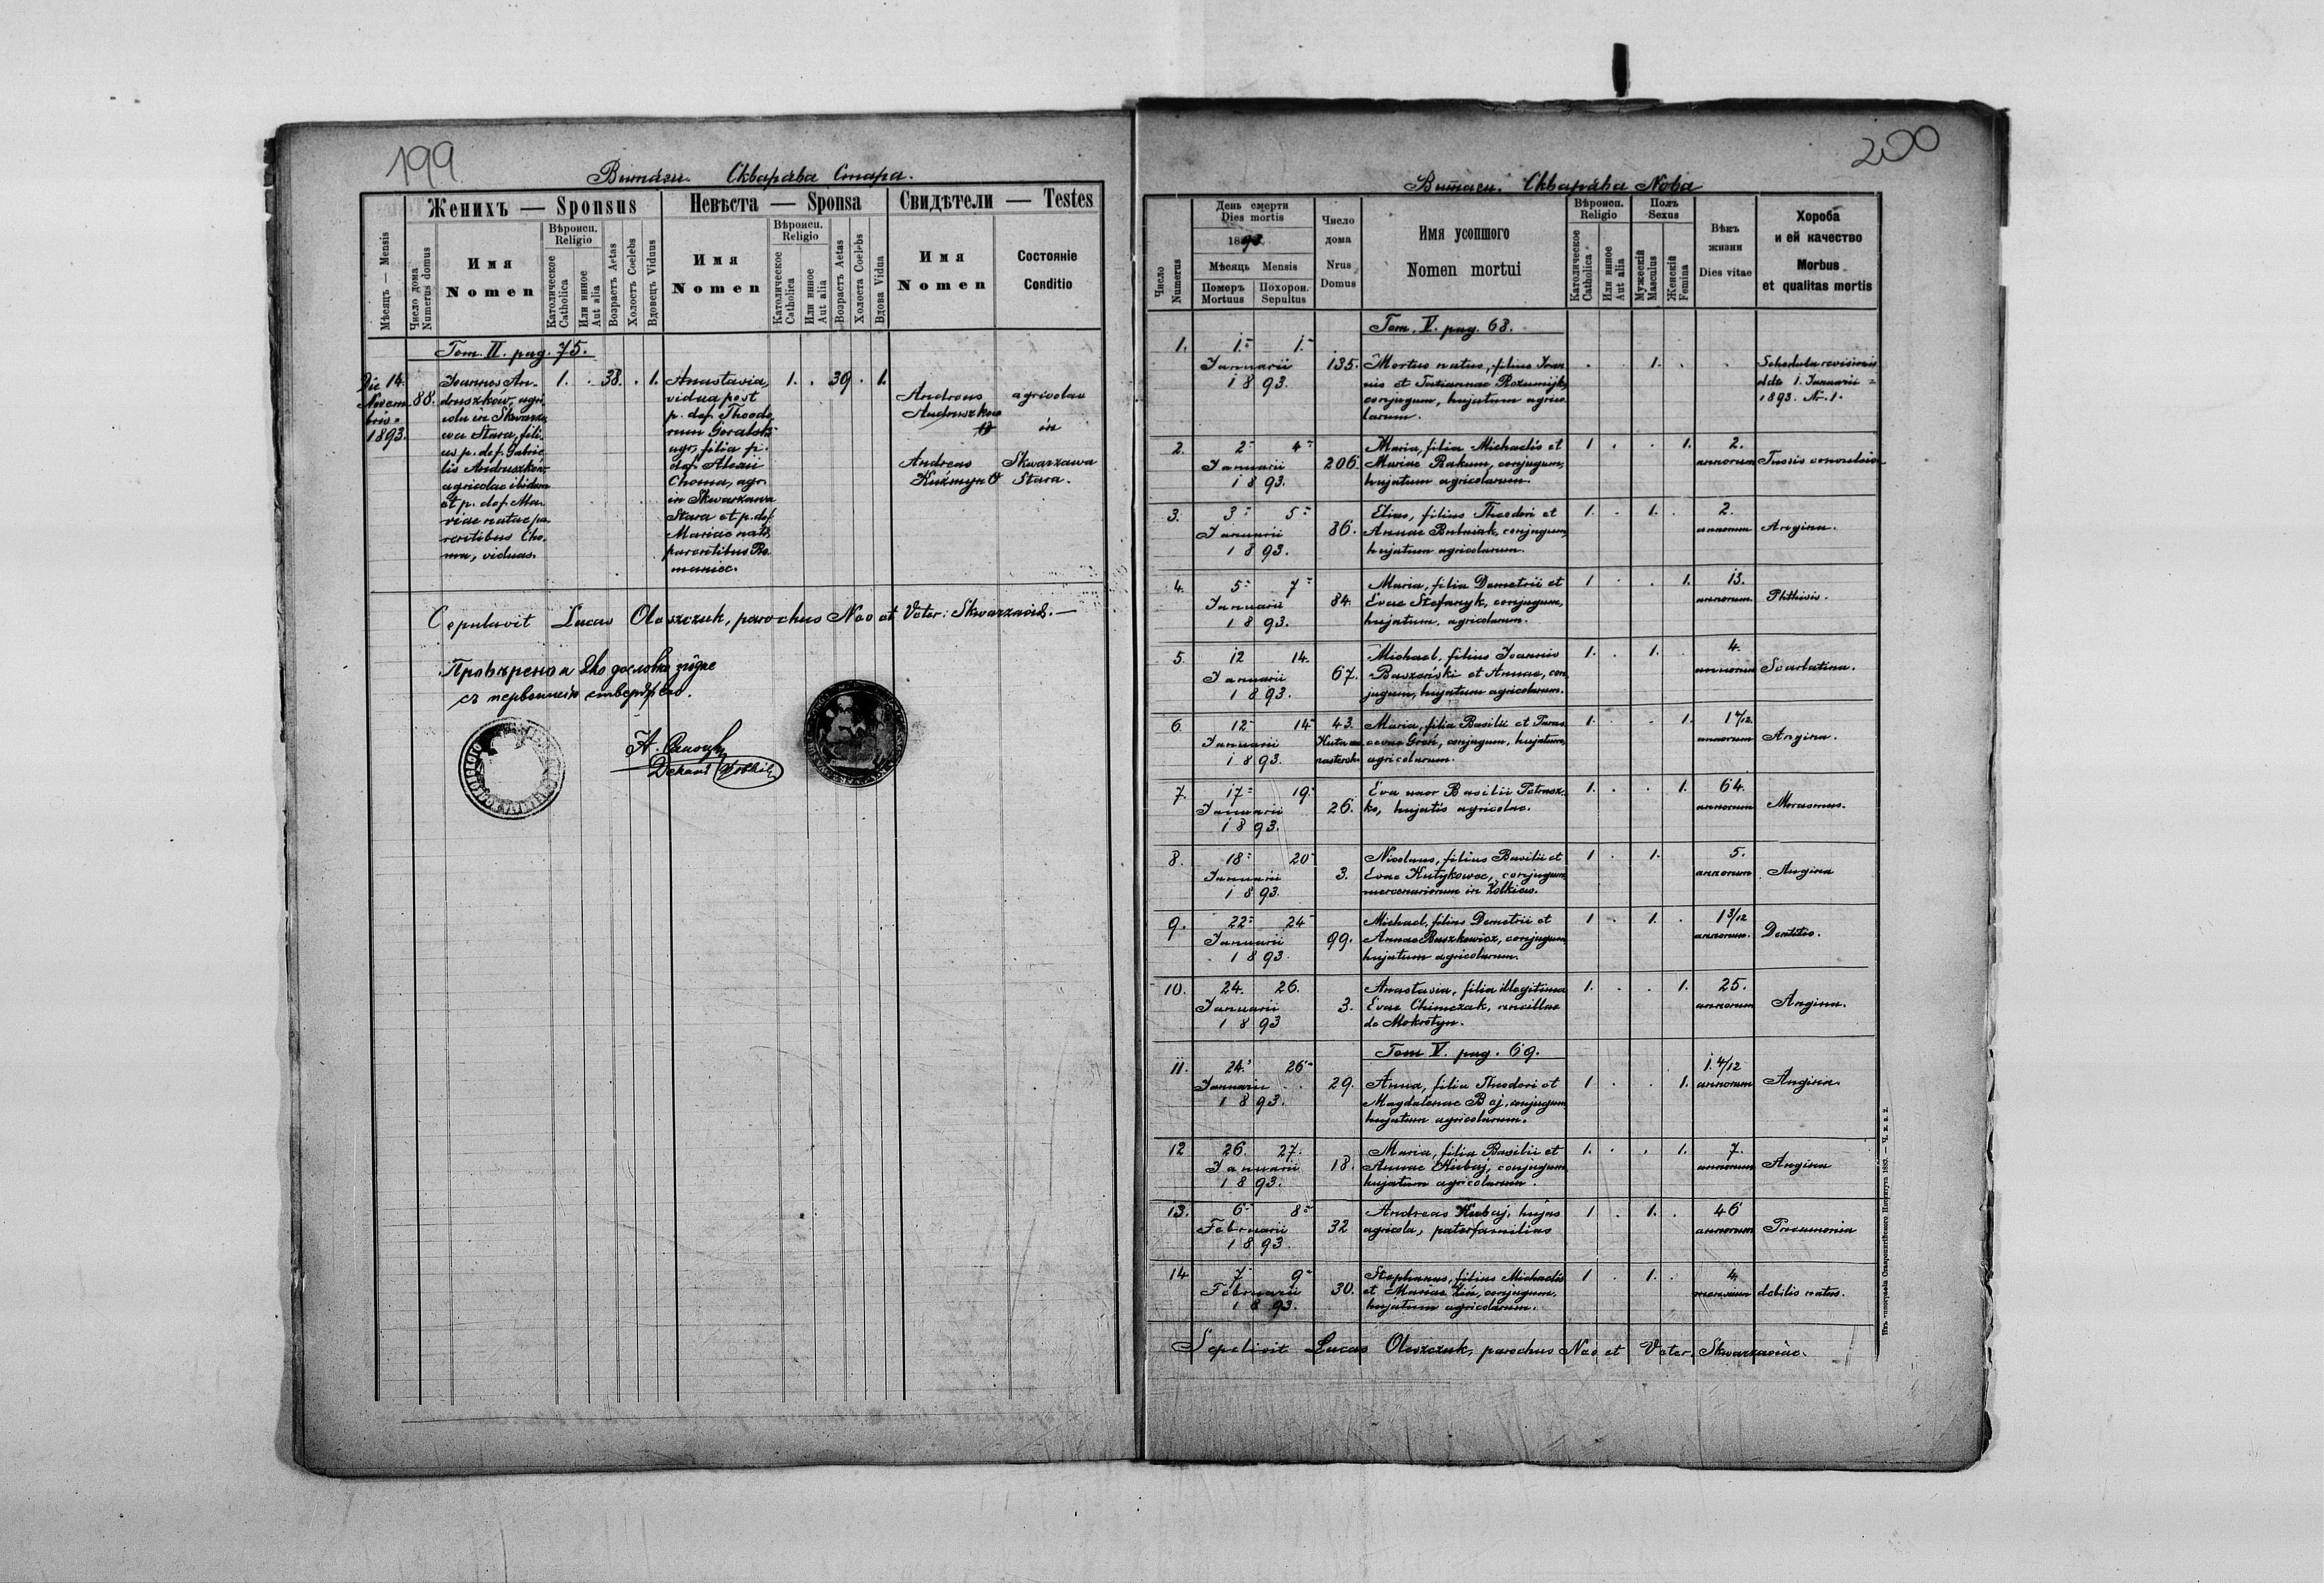 199
Скварява Стара.
Женихъ — Sponsus
Невѣста — Sponsa
Свидѣтели — Testes
Мѣсяць — Mensis
Число дома
Numerus domus
Имя
Nomen
Вѣроисп.
Religio
Католическое
Catholica
Или инное
Aut alia
Возрастъ Aetas
Холостъ Coelebs
Вдовецъ Viduus
Имя
Nomen
Вѣроисп.
Religio
Католическое
Catholica
Или инное
Aut alia
Возрастъ Aetas
Холоста Coelebs
Вдова Vidua
Имя
Nomen
Состояніе
Conditio
Tom. II. pag. 75.
Die 14.
Novem
bris
1893.
88.
Joannes An-
druszkow, agri
cola in Skwarza
wa Stara, fili
us p. def. Gabrie
lis Andruszków
agricolae ibidem
et p. def. Ma-
riae natae pa-
rentibus Cho-
ma, viduus.
1. . 38. . 1.
Anastasia,
vidua post
p. def. Theodo
rum Goralski
agr., filia p.
def. Alexii
Choma, agr.
in Skwarzawa
Stara et p. def.
Mariae nata
parentibus Ro
maniec.
1. . 39 . 1.
Andreas
Andruszkow
Andreas
Kuźmyn
agricolae
in
Skwarzawa
Stara.
Copulavit Lucas Oleszczuk, parochus Neo et Veter: Skwarzaviae.
200
Скварява Nова
Число
Numerus
День смерти
Dies mortis
1893.
Мѣсяць Mensis
Померъ
Mortuus
Похорон.
Sepultus
Число
дома
Nrus
Domus
Имя усопшого
Nomen mortui
Вѣроисп.
Religio
Католическое
Catholica
Или инное
Aut alia
Полъ
Sexus
Мужескій
Masculus
Женскій
Femina
Вѣкъ
жизни
Dies vitae
Хороба
и ей качество
Morbus
et qualitas mortis
Tom. V. pag. 68.
1. 1. 1.
Januarii
1893.
135.
Mortuo natus, filius Joan
nis et Tatiannae Rozumijk,
conjugum, hujatum agrico
larum.
. . 1. . .
Schedula revisionis
ddto 1. Januarii
1893. Nr. 1.
2. 2 4
Januarii
1893.
206.
Maria, filia Michaelis et
Mariae Rakum, conjugum,
hujatum agricolarum.
1 . . 1. 2.
annorum
Tussis convulsiva
3. 3 5
Januarii
1893.
86.
Elias, filius Theodori et
Annae Bubniak, conjugum,
hujatum agricolarum.
1. . 1. . 2.
annorum
Angina.
4. 5 7
Januarii
1893.
84.
Maria, filia Demetrii et
Evae Stefanyk, conjugum,
hujatum, agricolarum.
1 . . 1. 13.
annorum
Phthisis.
5. 12 14.
Januarii
1893.
67.
Michael, filius Joannis
et Annae, con
jugum, hujatum agricolarum.
1. . 1. . 4.
annorum
Scarlatina.
6. 12 14
Januarii
1893.
43.
Maria, filia Basilii et Paras
cevae Groń, conjugum, hujatum,
agricolarum.
1. . . 1.
annorum
Angina.
7. 17 19
Januarii
1893.
26.
Eva uxor Basilii Petrusz-
ko, hujatis agricolae.
1. . . 1. 64.
annorum
Marasmus.
8. 18 20
Januarii
1893.
3.
Nicolaus, filius Basilii et
Evae Kutykowec, conjugum,
mercenariorum in Żołkiew.
1 . 1. 5.
annorum
Angina
9. 22 24
Januarii
1893.
99.
Michael, filius Demetrii et
Annae Buszkewicz, conjugum
hujatum agricolarum.
1 . 1. . 1 3/12
annorum.
Dentitio.
10. 24. 26.
Januarii
1893
3.
Anastasia, filia illegitima
Evae Chimczak, ancillae
de Mokrotyn.
1. . . 1. 25.
annorum
Angina.
Tom V. pag. 69.
11. 24. 26
Januarii
1893.
29.
Anna, filia Theodori et
Magdalenae Baj, conjugum
hujatum agricolarum.
1 . . 1. 1. 4/12
annorum
Angina.
12 26. 27.
Januarii
1893.
18.
Maria, filia Basilii et
Annae Kubaj, conjugum
hujatum agricolarum.
1. . . 1. 7.
annorum
Angina
13. 6 8
Februarii
1893.
32
Andreas Kubaj, hujas
agricola, paterfamilias
1 . 1. . 46
annorum
Pneumonia
14 7 9
Februarii
1893.
30.
Stephanus, filius Michaelis
et Mariae Ziń, conjugum,
hujatum agricolarum.
1 . 1. . 4
mensium
debilis natus.
Sepelivit Lucas Oleszczuk, parochus Neo et Veter. Skwarzaviae.